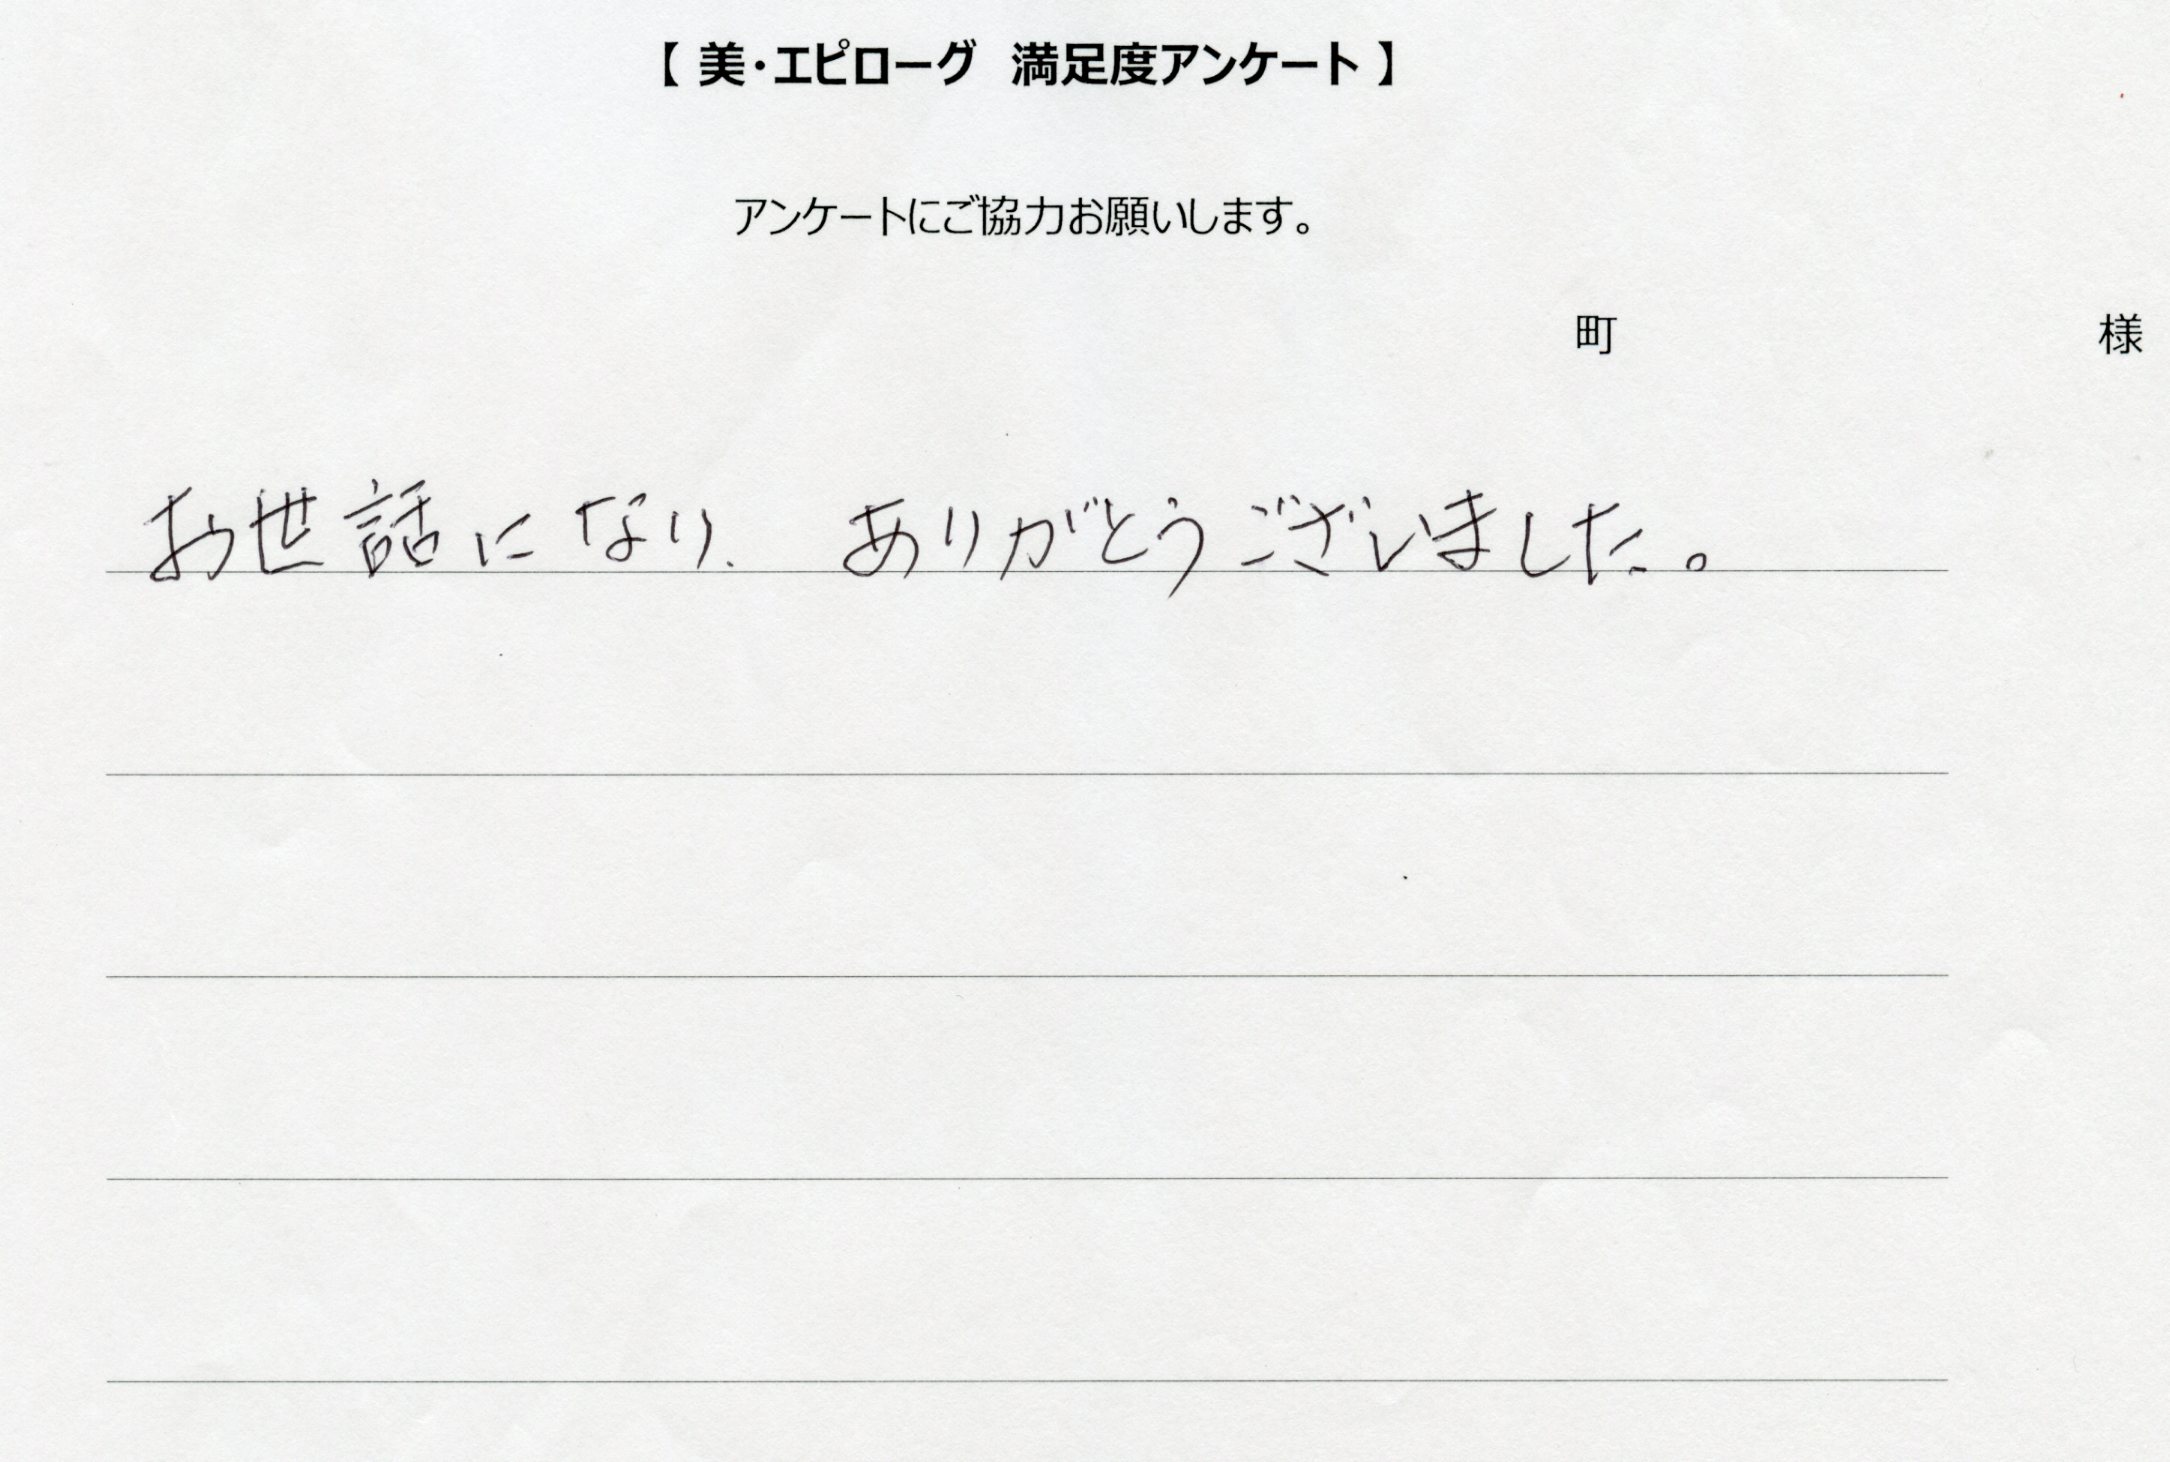 【 美・エピローグ　満足度アンケート 】
アンケートにご協力お願いします。
町　　　　　様
お世話になり、ありがとうございました。